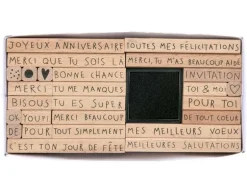 JOYEUX ANNIVERSAIRE
MERCI QUE TU SOIS LÀ
BONNE CHANCE
MERCI TU ME MANQUES
BISOUS TU ES SUPER
OK YOUPI DE TOUT COEUR
DE POUR TOUT SIMPLEMENT
C'EST TON JOUR DE FÊTE
TOUTES MES FÉLICITATIONS
MERCI, TU M'AS BEAUCOUP AIDÉ
INVITATION
TOI & MOI
POUR TOI
DE TOUT COEUR
MES MEILLEURS VOEUX
MEILLEURES SALUTATIONS